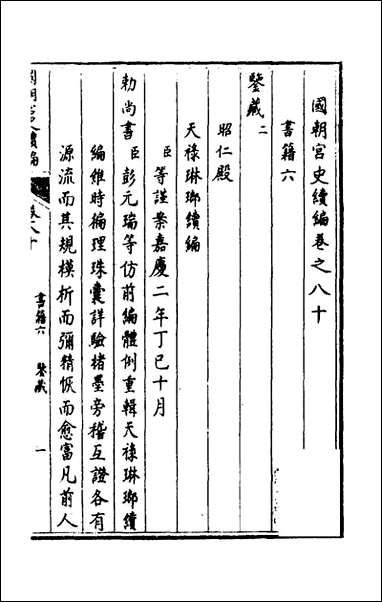 國朝宫史續編卷之八十
書籍六
鑒藏二
昭仁殿
天祿琳瑯續編
臣等謹案嘉慶二年丁巳十月
勅尚書臣彭元瑞等仿前編體例重輯天祿琳瑯續
編維時徧理珠囊詳驗楮墨旁稽互證各有
源流而其規模析而彌精恢而愈富凡前人
國朝宫史續編
卷八十
書籍六 鑒藏
一